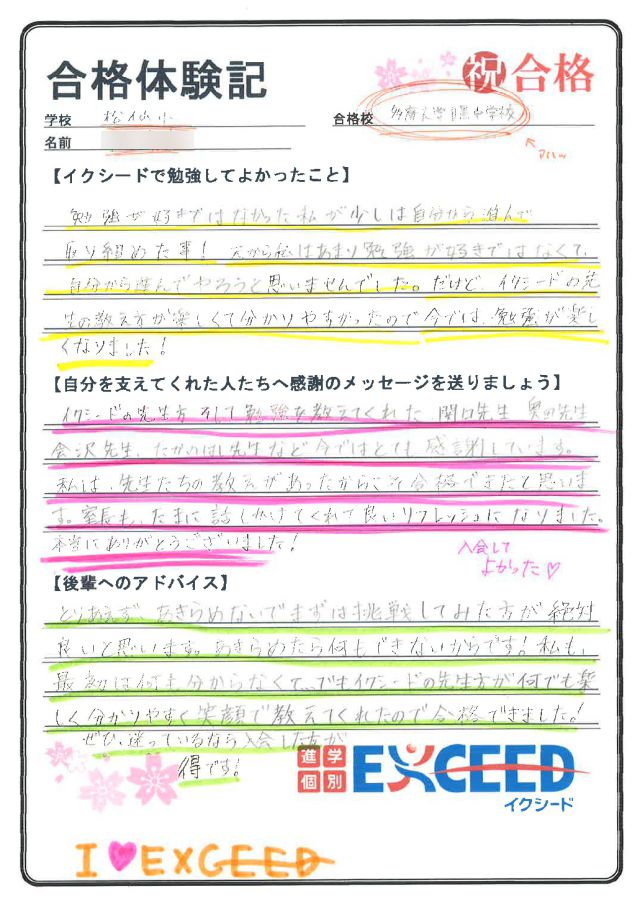 合格体験記
祝 合格
学校 松仙小
合格校 多摩大学目黒中学校
名前
【イクシードで勉強してよかったこと】
勉強が好きではなかった私が少しは自分から進んで
取り組めた事！ 元から私はあまり勉強が好きではなくて、
自分から進んでやろうと思いませんでした。だけど、イクシードの先
生の教え方が楽しくて分かりやすかったので今では、勉強が楽し
くなりました！
【自分を支えてくれた人たちへ感謝のメッセージを送りましょう】
イクシードの先生方 そして勉強を教えてくれた 関口先生 奥田先生
会沢先生、たかのはし先生など今ではとても 感謝しています。
私は、先生たちの教えがあったからこそ合格できたと思いま
す。室長も、たまに話しかけてくれて良いリフレッシュになりました。
本当にありがとうございました！
入会して
よかった♡
【後輩へのアドバイス】
とりあえず、あきらめないでまずは挑戦してみた方が 絶対
良いと思います。あきらめたら何もできないからです！私も、
最初は何も分からなくて…でもイクシードの先生方が何でも楽
しく分かりやすく笑顔で教えてくれたので合格できました！
ぜひ、迷っているなら入会した方が
得です！
進学
個別
EXCEED
イクシード
I ♥ EXCEED